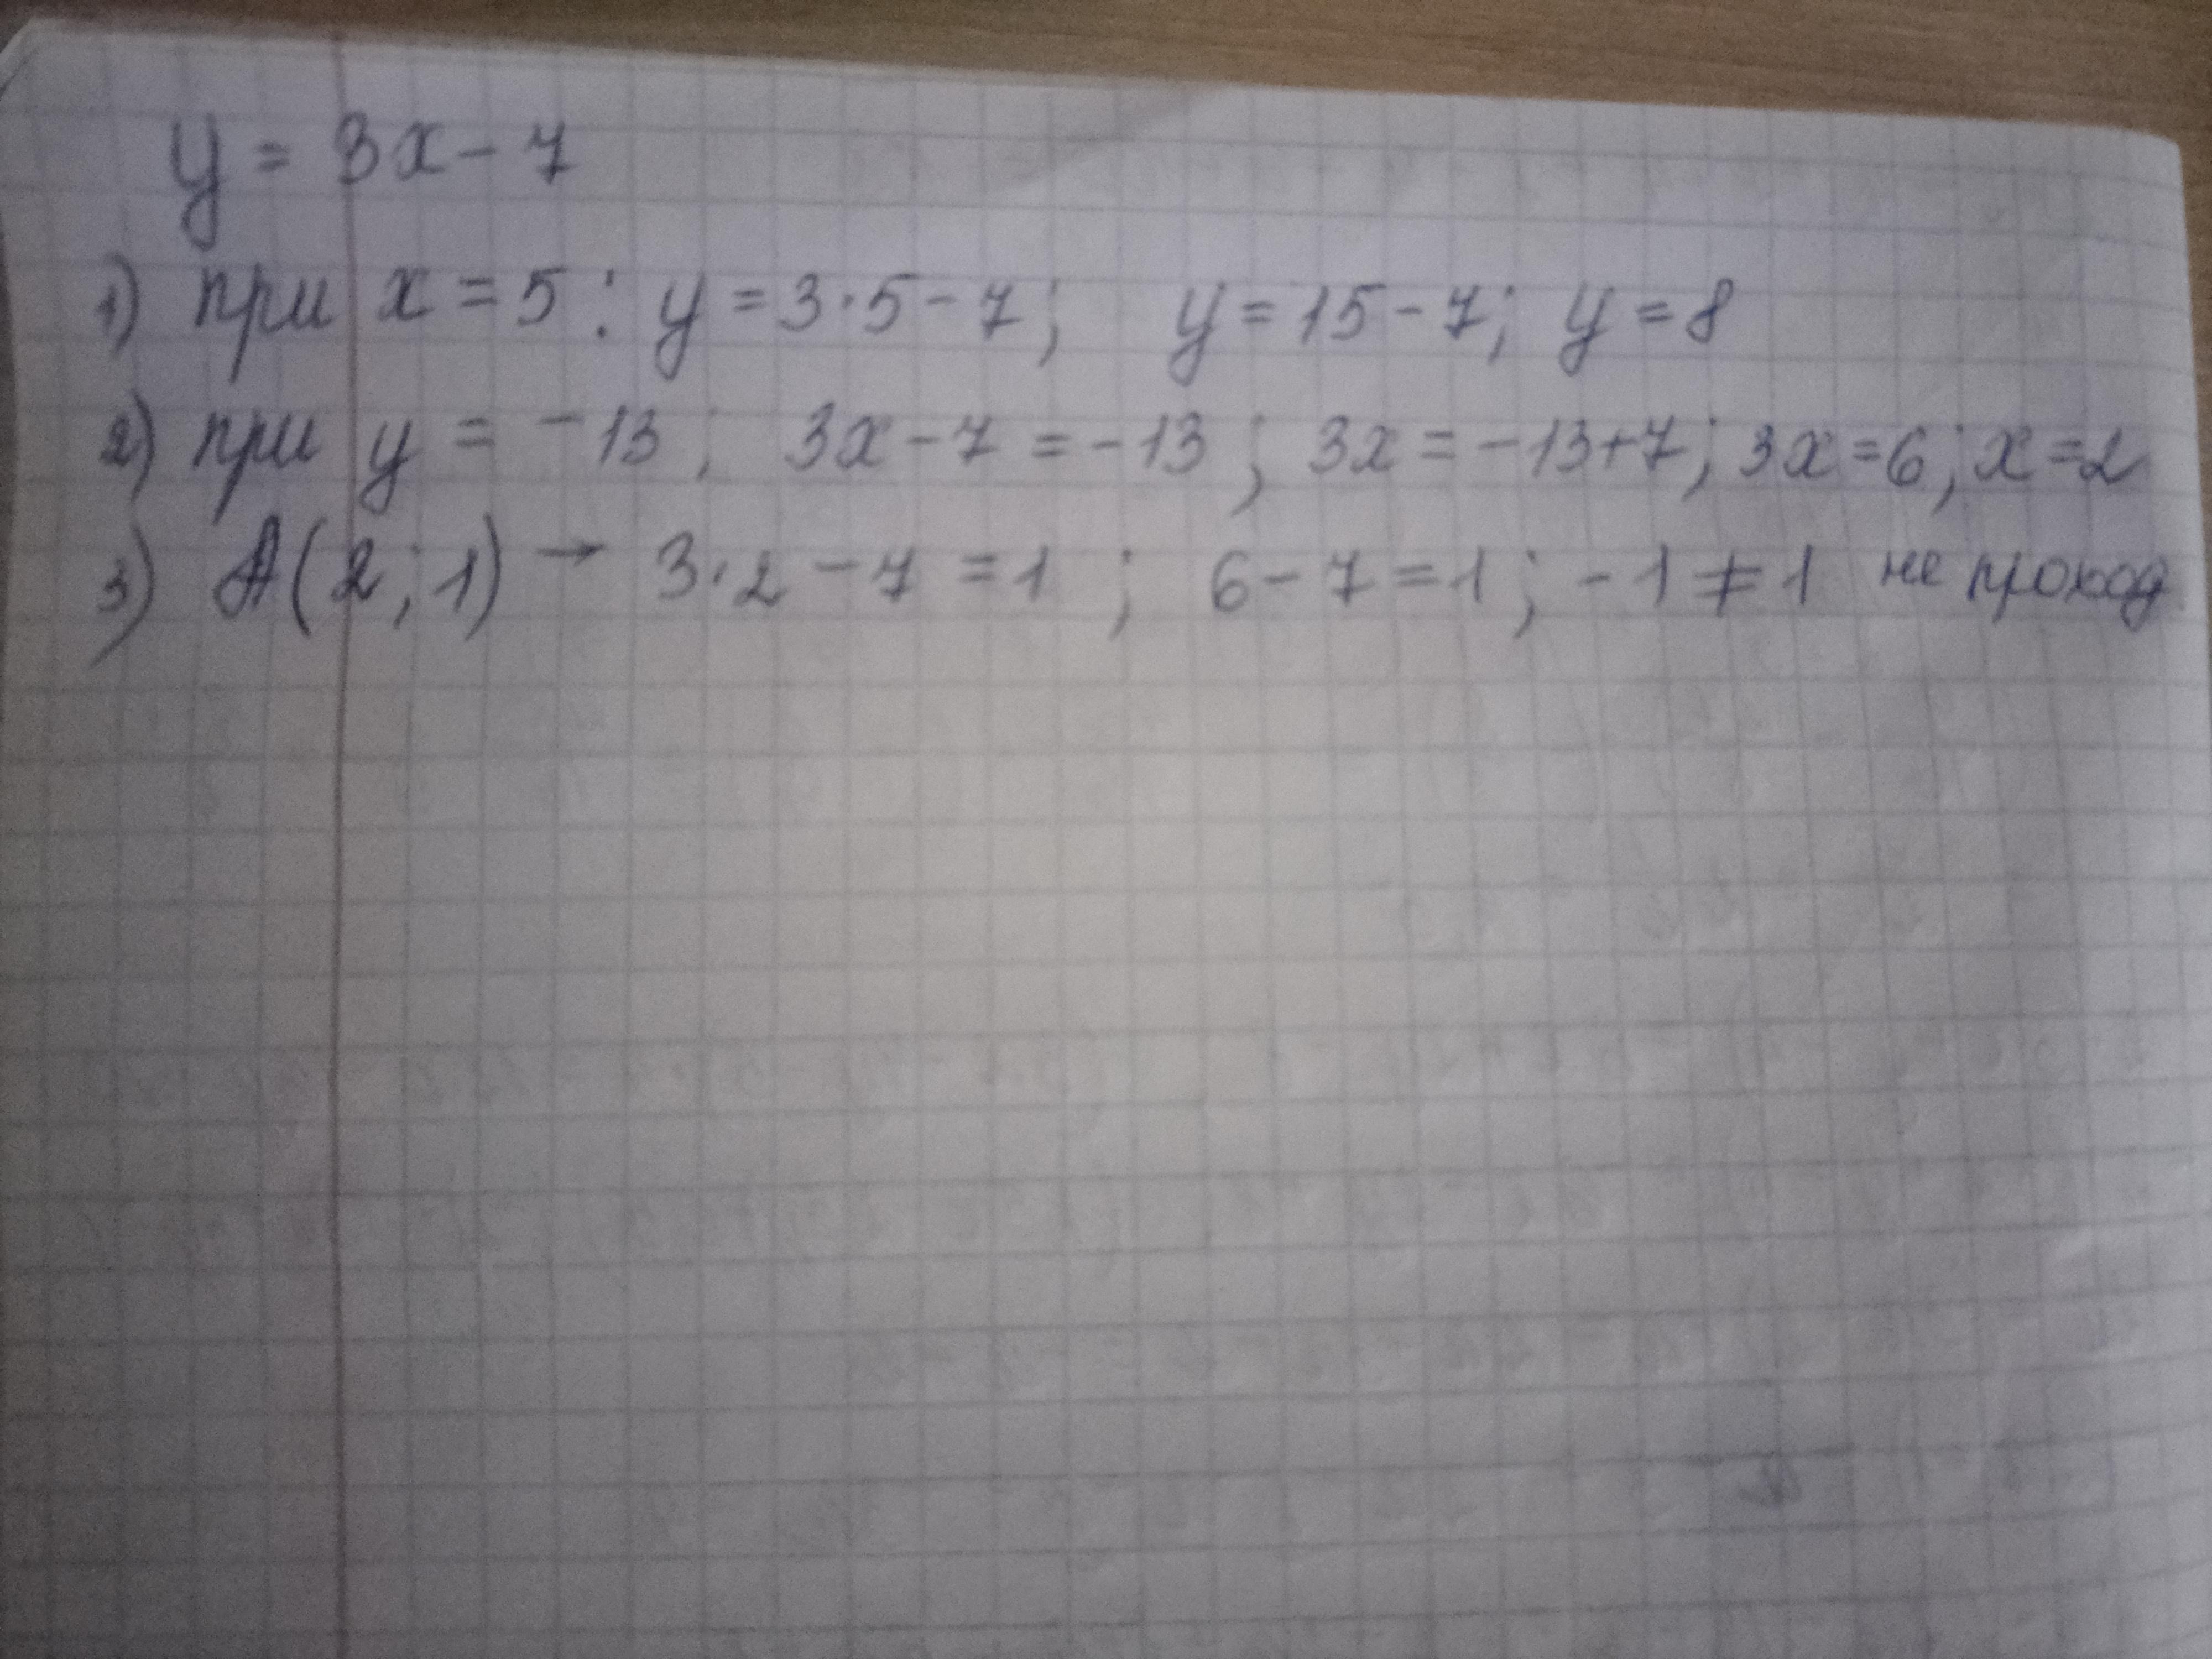 y = 3x - 7
1) при x = 5 : y = 3·5 - 7; y = 15 - 7; y = 8
2) при y = -13; 3x - 7 = -13; 3x = -13+7; 3x = 6; x = 2
3) A(2; 1) → 3·2 - 7 = 1; 6 - 7 = 1; -1 ≠ 1 не проход